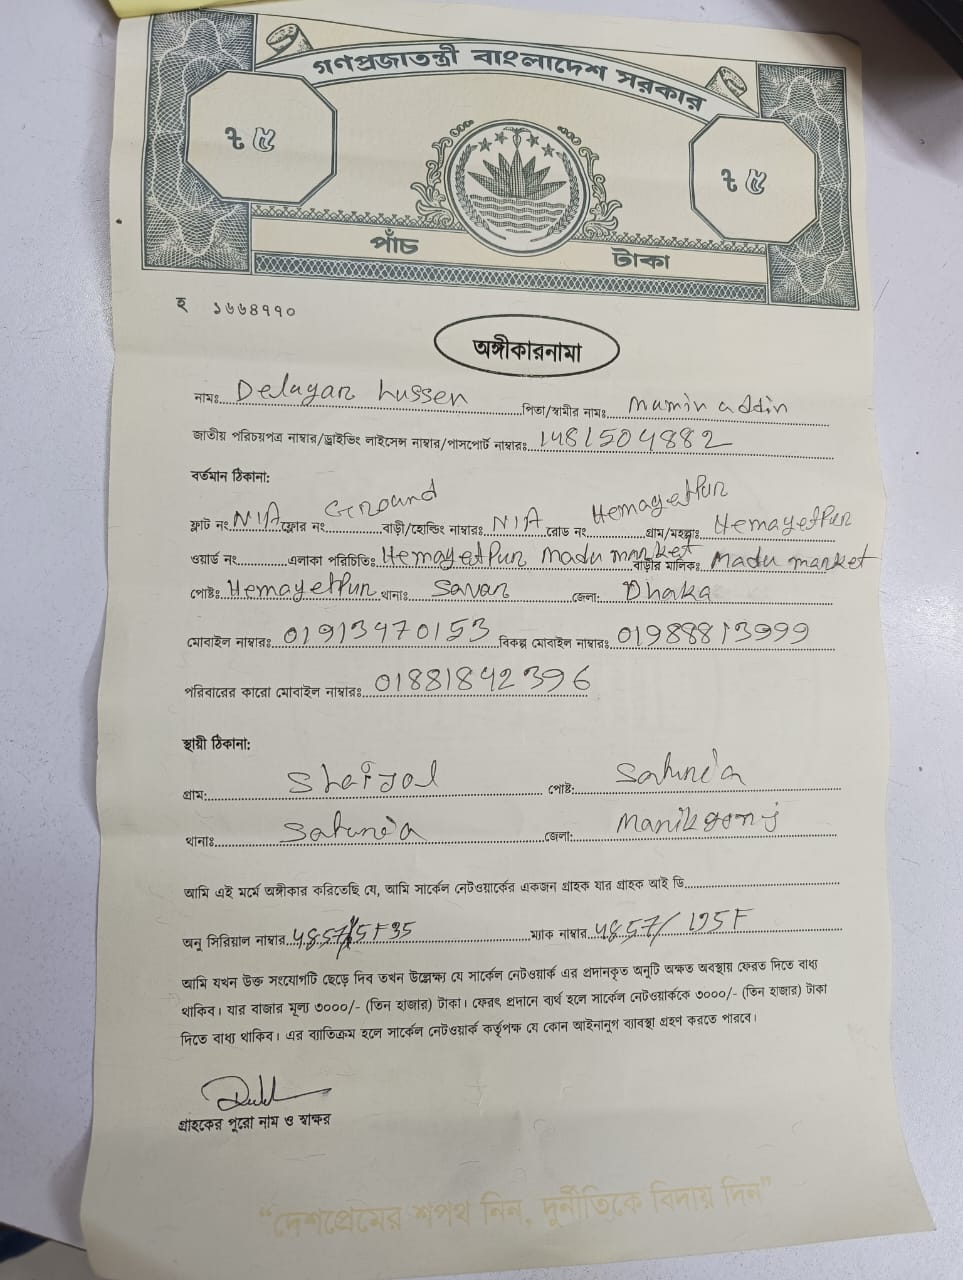 গণপ্রজাতন্ত্রী বাংলাদেশ সরকার
৳ ৫ ৳ ৫
পাঁচ টাকা
হ ১৬৬৪৭৭০
অঙ্গীকারনামা
নামঃ Delayar hussen পিতা/স্বামীর নামঃ mumin addin
জাতীয় পরিচয়পত্র নাম্বার/ড্রাইভিং লাইসেন্স নাম্বার/পাসপোর্ট নাম্বারঃ 1481504882
বর্তমান ঠিকানা:
ফ্লাট নং N/A ফ্লোর নং Ground বাড়ী/হোল্ডিং নাম্বারঃ N/A রোড নং Hemayetpur গ্রাম/মহল্লাঃ Hemayetpur
ওয়ার্ড নং এলাকা পরিচিতিঃ Hemayetpur madu market বাড়ীর মালিকঃ Madu market
পোষ্টঃ Hemayetpur থানাঃ Savar জেলা: Dhaka
মোবাইল নাম্বারঃ 01913470153 বিকল্প মোবাইল নাম্বারঃ 01988813999
পরিবারের কারো মোবাইল নাম্বারঃ 01881842396
স্থায়ী ঠিকানা:
গ্রাম: পোষ্ট: Saturia
থানাঃ Saturia জেলা: Manikgonj
আমি এই মর্মে অঙ্গীকার করিতেছি যে, আমি সার্কেল নেটওয়ার্কের একজন গ্রাহক যার গ্রাহক আই ডি
অনু সিরিয়াল নাম্বার ম্যাক নাম্বার
আমি যখন উক্ত সংযোগটি ছেড়ে দিব তখন উল্লেক্ষ্য যে সার্কেল নেটওয়ার্ক এর প্রদানকৃত অনুটি অক্ষত অবস্থায় ফেরত দিতে বাধ্য
থাকিব। যার বাজার মূল্য ৩০০০/- (তিন হাজার) টাকা। ফেরৎ প্রদানে ব্যর্থ হলে সার্কেল নেটওয়ার্ককে ৩০০০/- (তিন হাজার) টাকা
দিতে বাধ্য থাকিব। এর ব্যাতিক্রম হলে সার্কেল নেটওয়ার্ক কর্তৃপক্ষ যে কোন আইনানুগ ব্যাবস্থা গ্রহণ করতে পারবে।
গ্রাহকের পুরো নাম ও স্বাক্ষর
“দেশপ্রেমের শপথ নিন, দুর্নীতিকে বিদায় দিন”